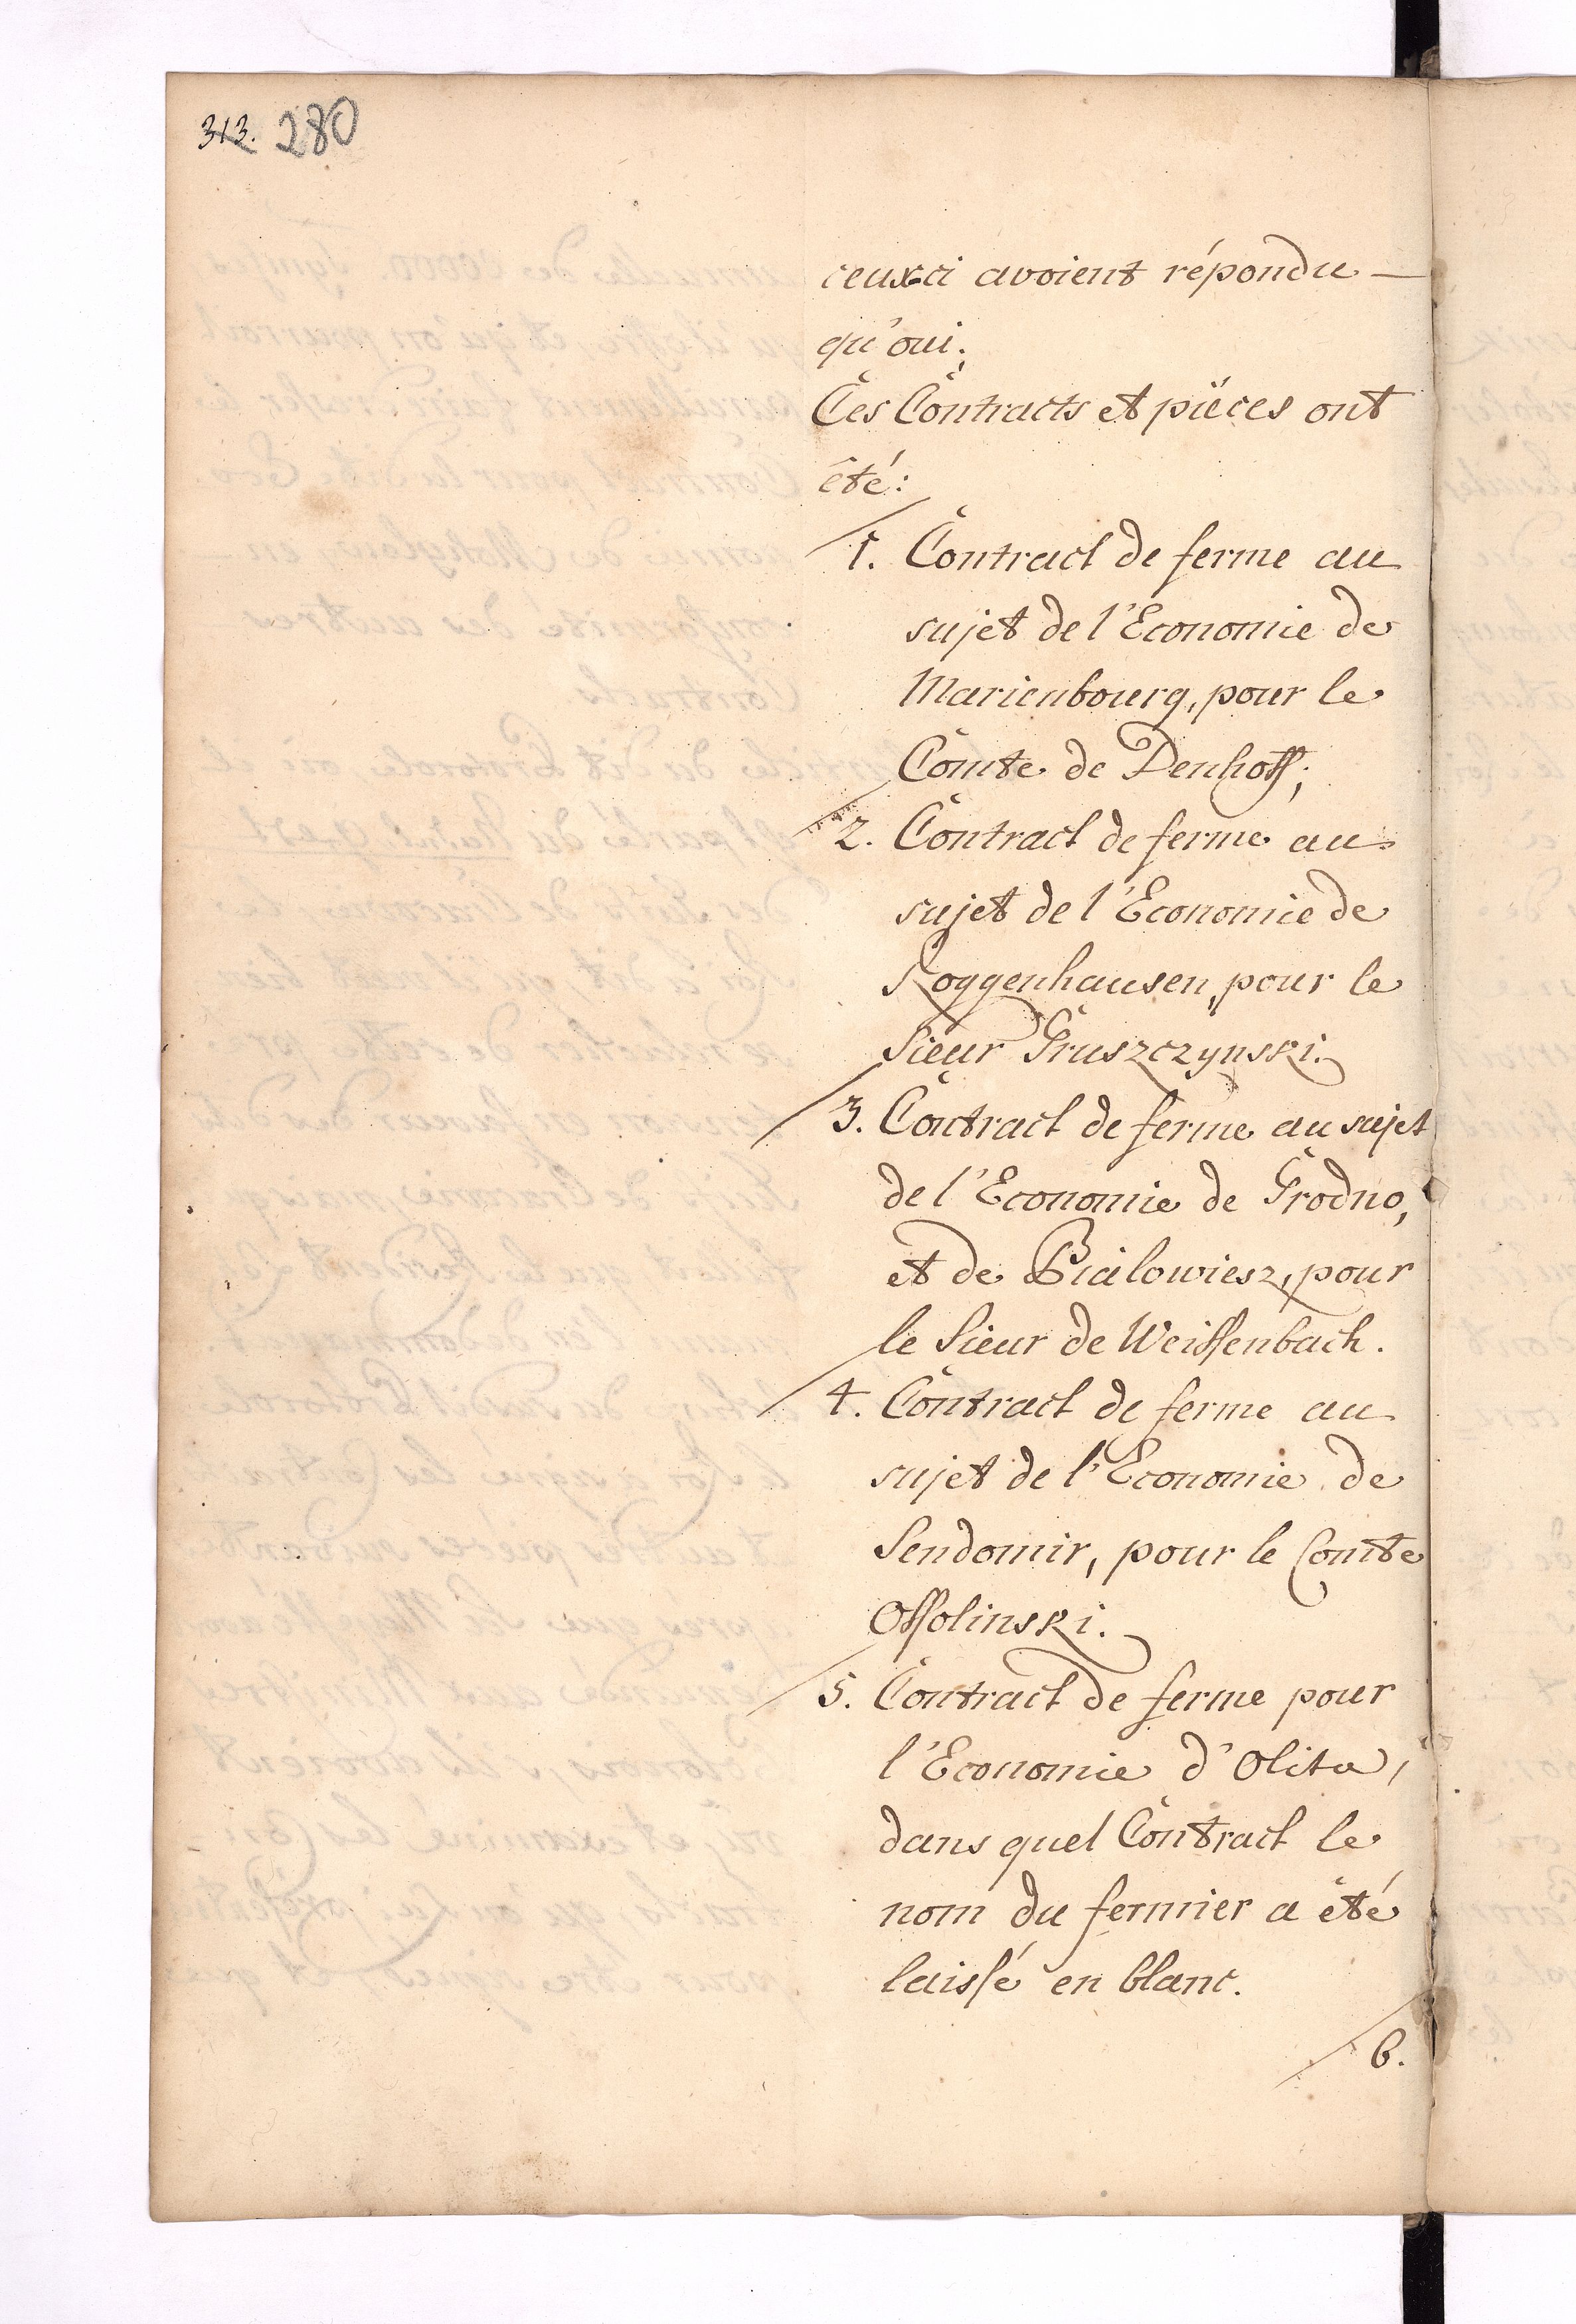 313. 280
ceuxci avoient répondu —
qu'oui;
Ces Contracts et pièces ont
été:
1. Contract de ferme au
sujet de l'Economie de
Marienbourg, pour le
Comte de Denhoff;
2. Contract de ferme au
sujet de l'Economie de
Roggenhausen, pour le
Sieur Gruszczynski.
3. Contract de ferme au sujet
de l'Economie de Grodno,
et de Bialowiesz, pour
le Sieur de Weissenbach.
4. Contract de ferme au
sujet de l'Economie de
Sendomir, pour le Comte
Ossolinski.
5. Contract de ferme pour
l'Economie d'Olita,
dans quel Contract le
nom du fermier a été
laissé en blanc.
6.